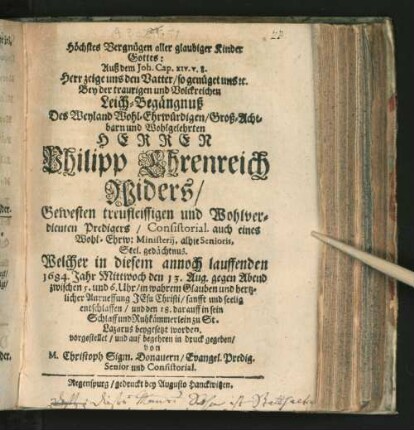 Höchstes Vergnügen aller glaubiger Kinder
Gottes:
Auß dem Joh. Cap. XIV. v. 8.
Herr zeige uns den Vatter/ so genüget uns ꝛc.
Bey der traurigen und Volckreichen
Leich-Begängnuß
Des Weyland Wohl-Ehrwürdigen/ Groß-Acht-
barn und Wohlgelehrten
HERREN
Philipp Ehrenreich
Widers/
Gewesten treufleissigen und Wohlver-
dienten Predigers/ Consistorial. auch eines
Wohl-Ehrw: Ministerij, alhie Senioris,
Seel. gedächtnuß.
Welcher in diesem annoch lauffenden
1684. Jahr Mittwoch den 13. Aug. gegen Abend
zwischen 5. und 6. Uhr/ in wahrem Glauben und hertz-
licher Anruffung JEsu Christi/ sanfft und seelig
entschlaffen/ und den 18. darauff in sein
Schlaff und Ruhkämmerlein zu St.
Lazarus beygesetzt worden,
vorgestellet/ und auf begehren in Druck gegeben/
von
M. Christoph Sigm. Donauern/ Evangel. Predig.
Senior und Consistorial.
Regenspurg/ gedruckt bey Augusto Hanckwitzen.